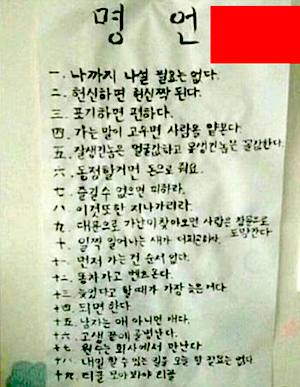 명언
一. 나까지 나설 필요는 없다.
二. 헌신하면 헌신짝 된다.
三. 포기하면 편하다.
四. 가는 말이 고우면 사람을 얕본다.
五. 잘생긴놈은 얼굴값하고 못생긴놈은 꼴값한다.
六. 동정할거면 돈으로 줘요.
七. 즐길수 없으면 피하라.
八. 이것또한 지나가리라.
九. 대문으로 가난이 찾아오면 사랑은 창문으로
도망간다
十. 일찍 일어나는 새가 더피곤하다.
十一 먼저 가는건 순서 없다.
十二 똥차가고 벤츠온다.
十三 늦었다고 할때가 가장 늦은거다
十四 되면 한다.
十五 남자는 애 아니면 개다.
十六 고생 끝에 골병난다.
十七 원수는 회사에서 만난다
十八 내일 할 수 있는 일을 오늘 할 필요는 없다.
十九 티클 모아봐야 티클